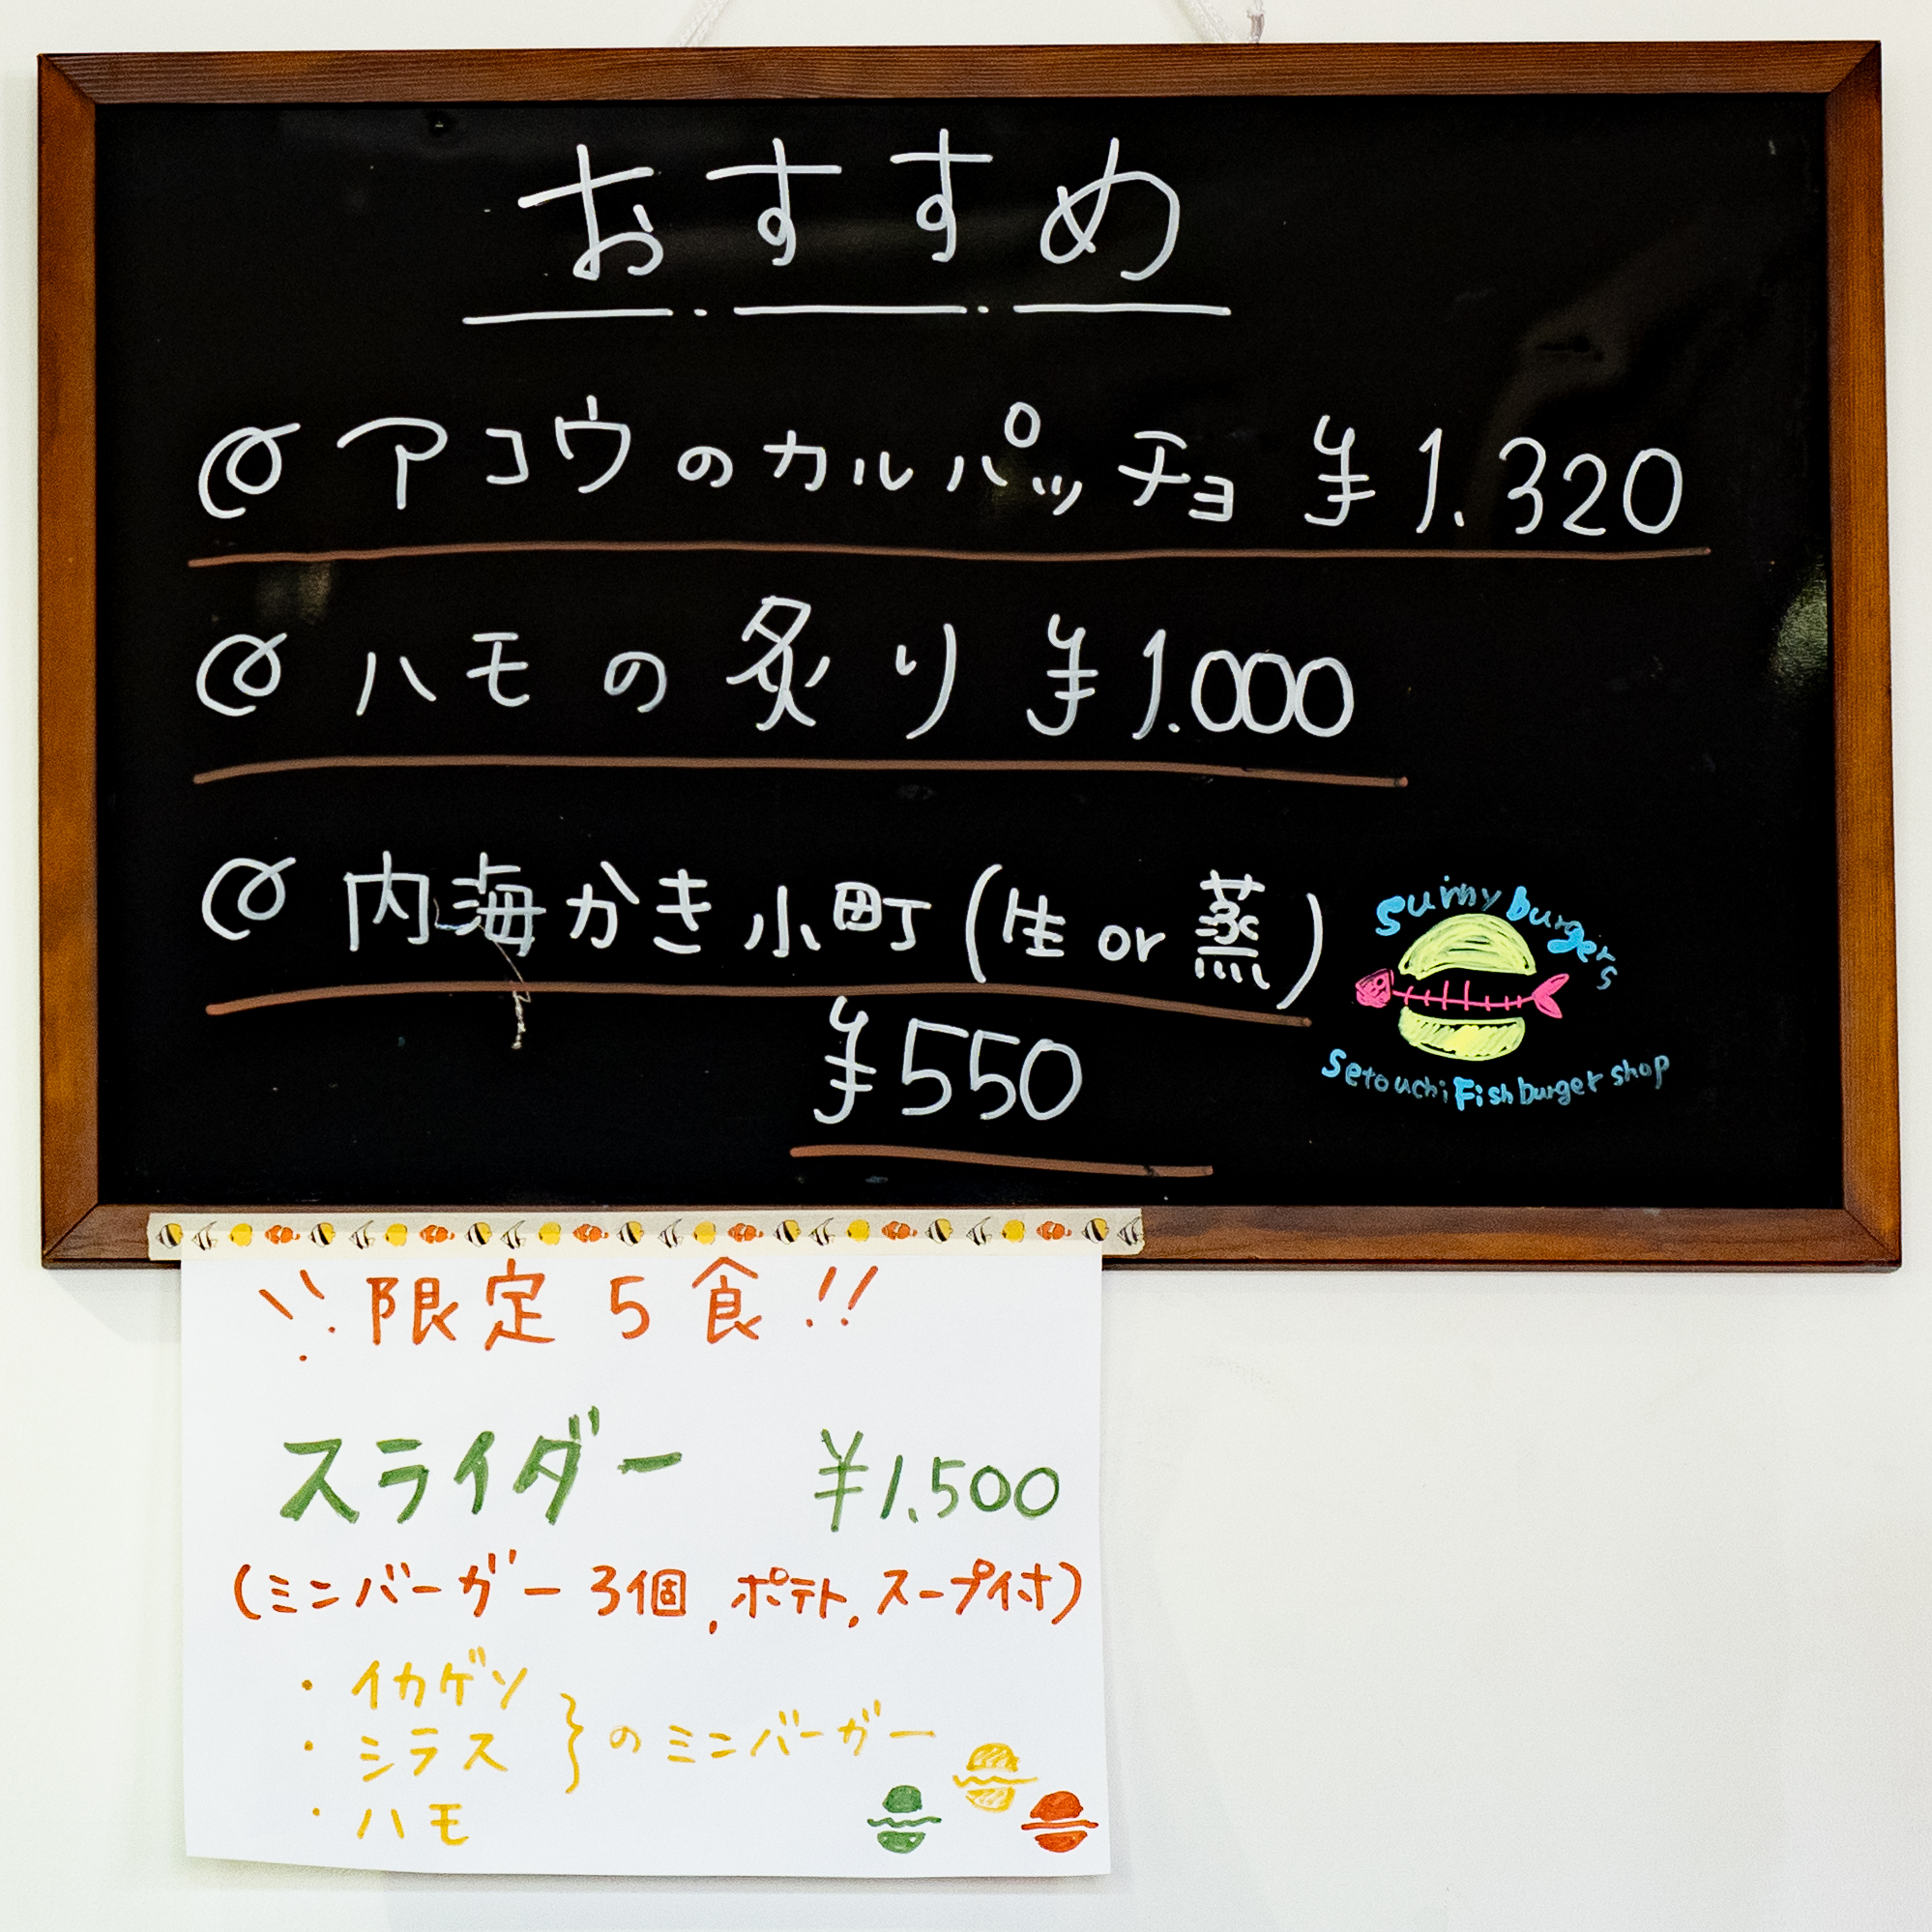 おすすめ
@ アコウのカルパッチョ ¥1.320
@ ハモの炙り ¥1.000
@ 内海かき小町(生or蒸)
¥550
Sunny burgers
Setouchi Fish burger shop
限定5食!!
スライダー ¥1,500
(ミニバーガー3個,ポテト,スープ付)
・イカゲソ
・シラス }のミニバーガー
・ハモ